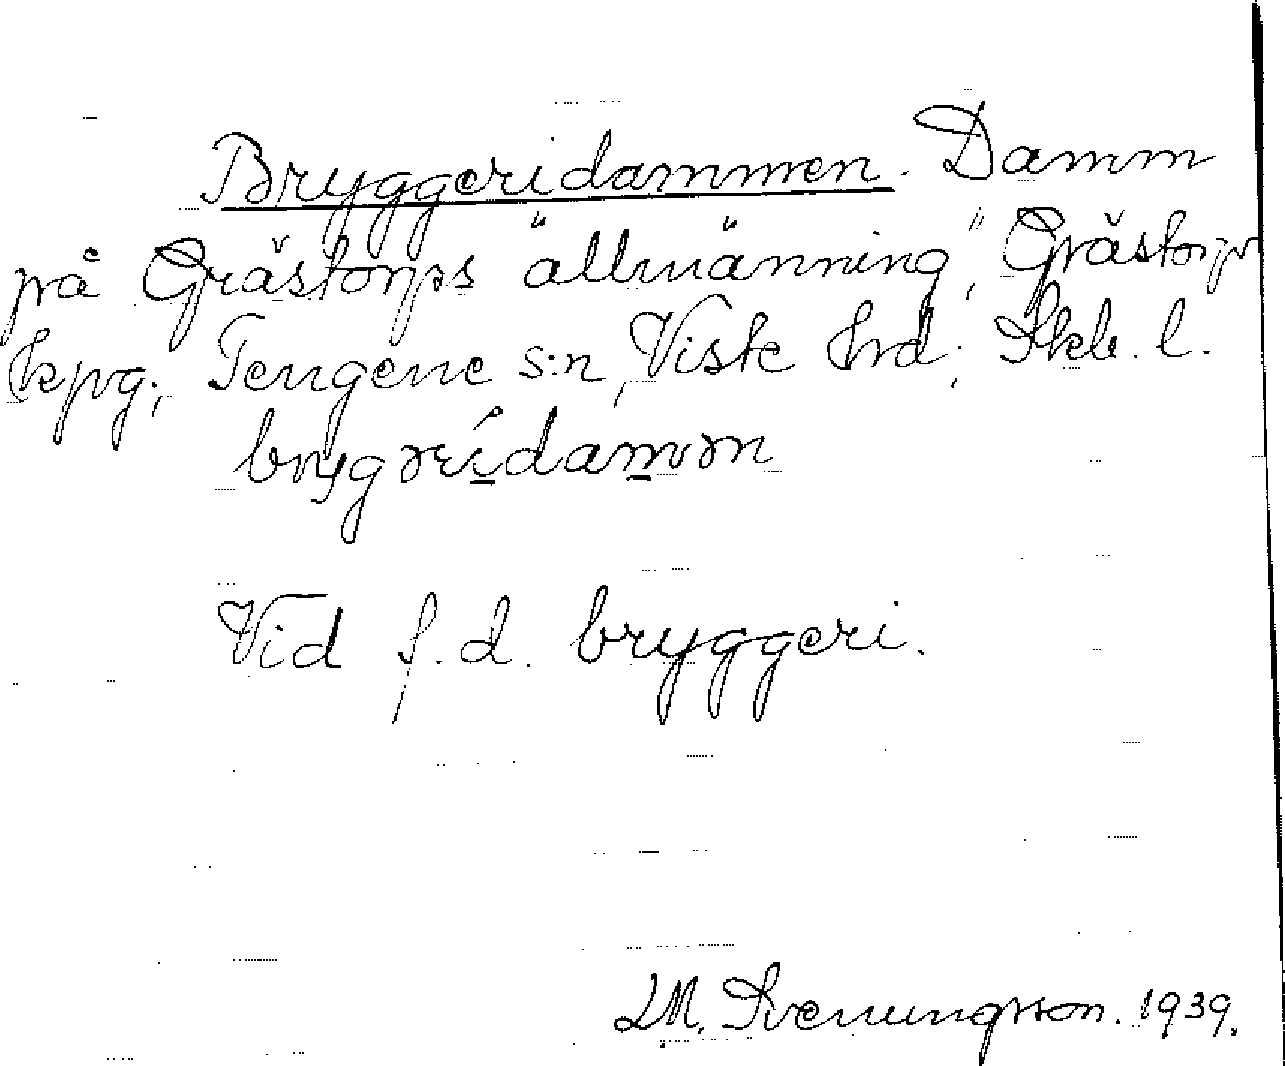 Bryggeridammen. Damm
på Grästorps "allmänning", Grästorps
kpg., Tengene s:n, Viste hrd, Skb. l.
brygɤeídamɤn
Vid f.d. bryggeri.
L.M. Svenungsson. 1939.